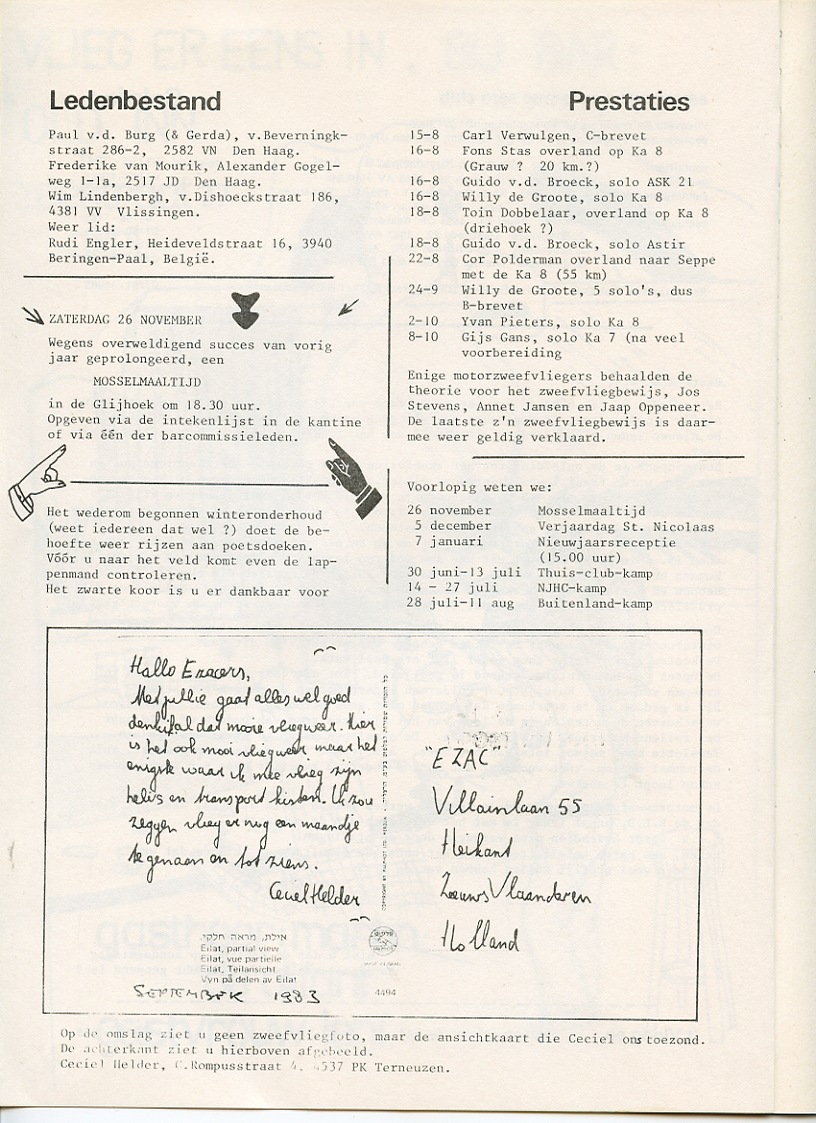 Ledenbestand
Paul v.d. Burg (& Gerda), v.Beverningk-
straat 286-2, 2582 VN Den Haag.
Frederike van Mourik, Alexander Gogel-
weg 1-1a, 2517 JD Den Haag.
Wim Lindenbergh, v.Dishoeckstraat 186,
4381 VV Vlissingen.
Weer lid:
Rudi Engler, Heideveldstraat 16, 3940
Beringen-Paal, België.
ZATERDAG 26 NOVEMBER
Wegens overweldigend succes van vorig
jaar geprolongeerd, een
MOSSELMAALTIJD
in de Glijhoek om 18.30 uur.
Opgeven via de intekenlijst in de kantine
of via één der barcommissieleden.
Het wederom begonnen winteronderhoud
(weet iedereen dat wel ?) doet de be-
hoefte weer rijzen aan poetsdoeken.
Vóór u naar het veld komt even de lap-
penmand controleren.
Het zwarte koor is u er dankbaar voor
Prestaties
15-8 Carl Verwulgen, C-brevet
16-8 Fons Stas overland op Ka 8
(Grauw ? 20 km.?)
16-8 Guido v.d. Broeck, solo ASK 21
16-8 Willy de Groote, solo Ka 8
18-8 Toin Dobbelaar, overland op Ka 8
(driehoek ?)
18-8 Guido v.d. Broeck, solo Astir
22-8 Cor Polderman overland naar Seppe
met de Ka 8 (55 km)
24-9 Willy de Groote, 5 solo's, dus
B-brevet
2-10 Yvan Pieters, solo Ka 8
8-10 Gijs Gans, solo Ka 7 (na veel
voorbereiding
Enige motorzweefvliegers behaalden de
theorie voor het zweefvliegbewijs, Jos
Stevens, Annet Jansen en Jaap Oppeneer.
De laatste z'n zweefvliegbewijs is daar-
mee weer geldig verklaard.
Voorlopig weten we:
26 november Mosselmaaltijd
5 december Verjaardag St. Nicolaas
7 januari Nieuwjaarsreceptie
(15.00 uur)
30 juni-13 juli Thuis-club-kamp
14 - 27 juli NJHC-kamp
28 juli-11 aug Buitenland-kamp
Hallo Ezacers,
Met jullie gaat alles wel goed
denk ik al dat mooie vliegweer. Hier
is het ook mooi vliegweer maar het
enigste waar ik mee vlieg zijn
heli's en transport kisten. Ik zou
zeggen vlieg er nog een maandje
tegenaan en tot ziens.
Ceciel Helder
אילת, מראה חלקי.
Eilat, partial view
Eilat, vue partielle
Eilat, Teilansicht
Vyn på delen av Eilat
SEPTEMBER 1983
4494
"EZAC"
Villainlaan 55
Heikant
Zeeuws Vlaanderen
Holland
Op de omslag ziet u geen zweefvliegfoto, maar de ansichtkaart die Ceciel ons toezond.
De achterkant ziet u hierboven afgebeeld.
Ceciel Helder, C.Rompusstraat 4, 4537 PK Terneuzen.